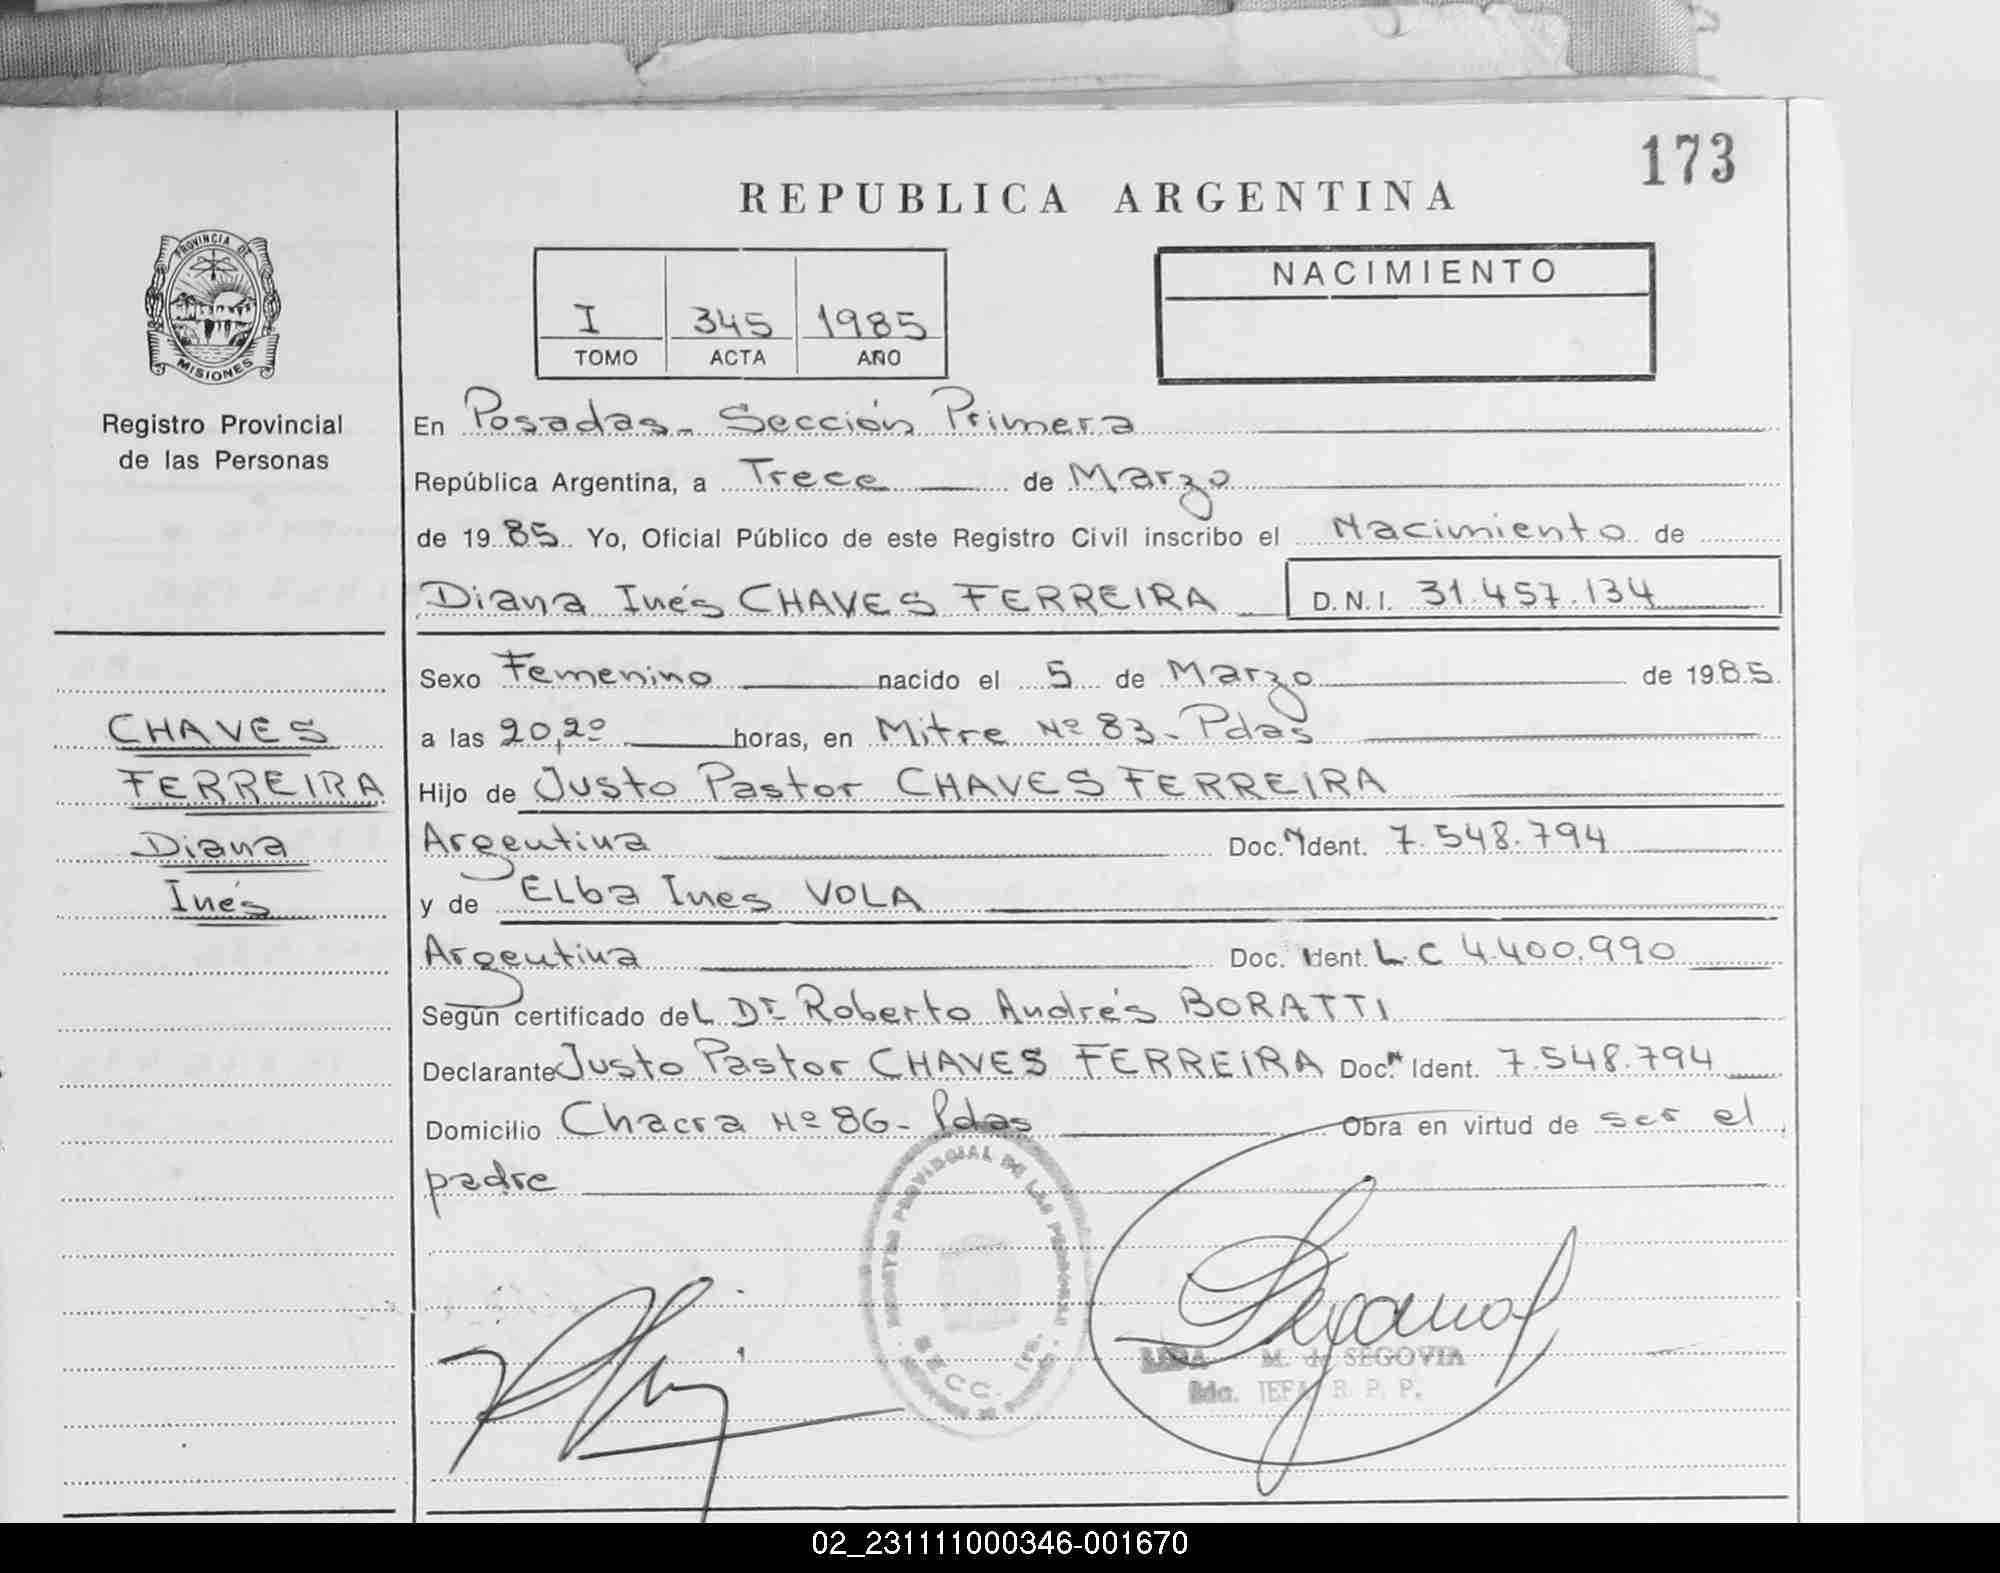 173
REPUBLICA ARGENTINA
PROVINCIA DE
MISIONES
Registro Provincial
de las Personas
I 345 1985
TOMO ACTA AÑO
NACIMIENTO
En Posadas - Sección Primera
República Argentina, a Trece de Marzo
de 1985 Yo, Oficial Público de este Registro Civil inscribo el Nacimiento de
Diana Inés CHAVES FERREIRA D.N.I. 31.457.134
CHAVES
FERREIRA
Diana
Inés
Sexo Femenino nacido el 5 de Marzo de 1985
a las 20,20 horas, en Mitre Nº 83 - Pdas
Hijo de Justo Pastor CHAVES FERREIRA
Argentina Doc. Ident. 7.548.794
y de Elba Ines VOLA
Argentina Doc. Ident. L.C 4.400.990
Según certificado del Dr Roberto Andrés BORATTI
Declarante Justo Pastor CHAVES FERREIRA Doc. Ident. 7.548.794
Domicilio Chacra Nº 86 - Pdas Obra en virtud de ser el
padre
PROVINCIAL DE LAS PERSONAS
M. de SEGOVIA
JEFA R. P. P.
02_231111000346-001670